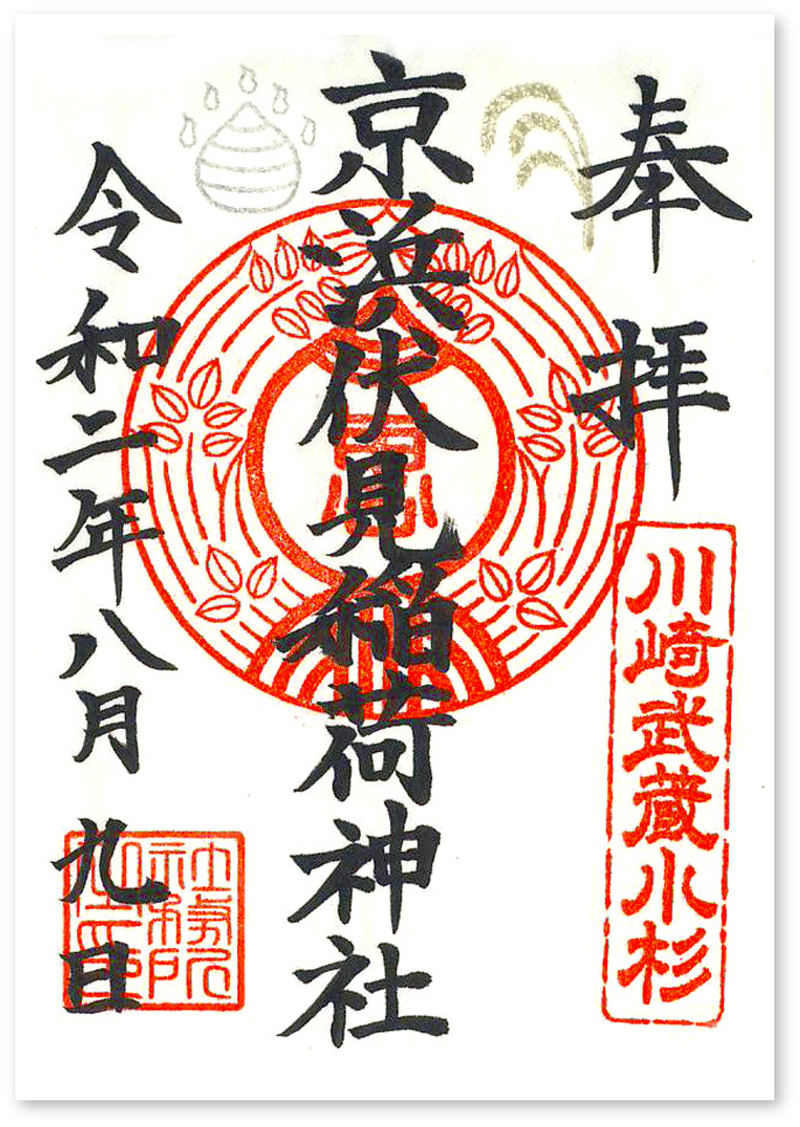 奉拝
川崎武蔵小杉
京浜伏見稲荷神社
令和二年八月九日
社務所